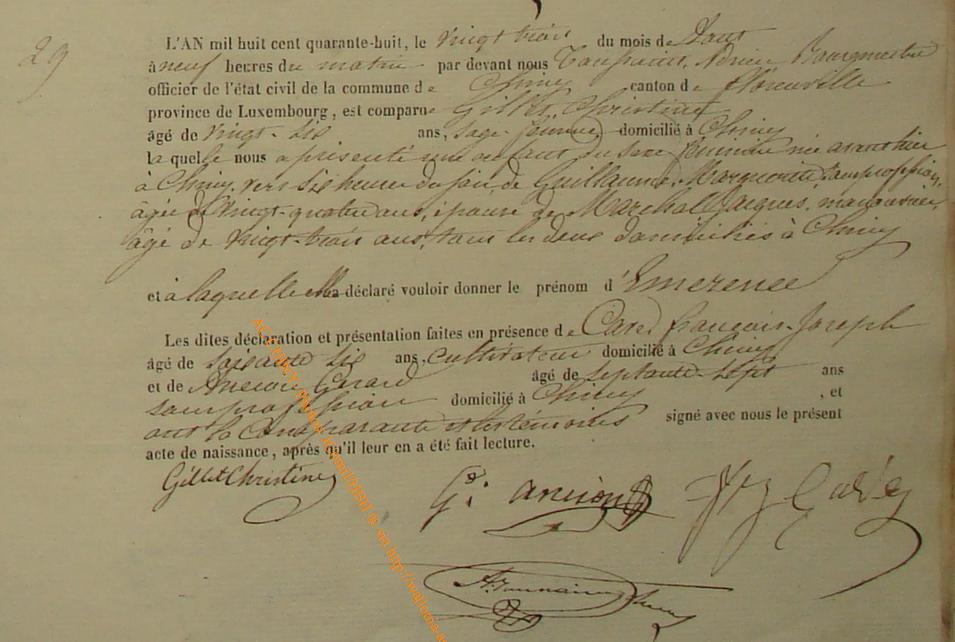 29
L'AN mil huit cent quarante-huit, le vingt trois du mois de Aout
à neuf heures du matin par devant nous Bourgmestre
officier de l'état civil de la commune de Chiny canton de Florenville
province de Luxembourg, est comparue Gillet, Christine
âgé de vingt-six ans, sage-femme, domicilié à Chiny
laquelle nous a présenté un enfant du sexe féminin née avant hier
à Chiny, vers six heures du soir de Guillaume, Marguerite, sans profession,
âgée de vingt-quatre ans, épouse de Marchal Jacques, manouvrier,
âgé de vingt-trois ans, tous les deux domiciliés à Chiny
et à laquelle elle a déclaré vouloir donner le prénom d'Emerence
Les dites déclaration et présentation faites en présence de François-Joseph
âgé de soixante six ans, cultivateur domicilié à Chiny
et de Ancion Gerard âgé de septante-sept ans
sans profession domicilié à Chiny, et
ont la Comparante et les témoins signé avec nous le présent
acte de naissance, après qu'il leur en a été fait lecture.
Gillet Christine
G. ancion